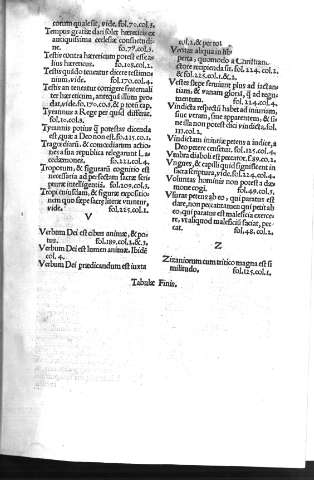 corum qualis sit, vide. fol.70.col.3.
Tempus gratiæ dari solet hæreticis ex
antiquissima ecclesiæ consuetudi
ne. fo.77.col.3.
Testis contra hæreticum potest esse a
lius hæreticus. fo.108.col.2.
Testis quãdo teneatur dicere testimo
nium, vide. fol.170.col.4.
Testis an teneatur corrigere fraternali
ter hæreticum, antequã illum pro
dat, vide.fo.170.co.3.& p totũ cap.
Tyrannus a Rege per quid differat.
fol.10.col.3.
Tyrannis potius q̃ potestas dicenda
est, quæ a Deo non est. fo.215.co.1.
Tragœdiarũ & comœdiarum actio
nes a sua republica relegarunt
cedæmones. fo.221.col.4.
Troporum, & figurarũ cognitio est
necessaria ad perfectam sacræ scri
pturæ intelligentiã. fol.209.col.3.
Tropi cuiusdam, & figuræ expositio
nem quo sæpe sacræ literæ vtuntur,
vide. fol.225.col.2.
V
Verbum Dei est cibus animæ, & po
tus. fol.189.col.2.& 3.
Verbum Dei est lumen animæ. Ibidẽ
col. 4.
Verbum Dei prædicandum est iuxta
col.2, & per tot
Veritas aliqua in
perta, quomodo a Christiani.
ctore recipienda sit. fol.224. col.2.
& fol.225.col.1.& 2.
Vester sæpe seruiunt plus ad iactan
tiam, & vanam gloriã, q̃ ad tegu
mentum. fol.224.col.4.
Vindicta respectũ habet ad iniuriam,
siue veram, siue apparentem, & si
ne illa non potest dici vindicta, fol.
111.col.2.
Vindictam iniuriæ petens a iudice, a
Deo petere censetur. fol.125.col.4.
Vmbra diaboli est peccator. f.89.co.2.
Vngues, & capilli quid significent in
sacra scriptura, vide. fol.224.col.4.
Voluntas hominis non potest a dæ-
mone cogi. fol.49.col.3.
Vsuras petens ab eo, qui paratus est
dare, non peccat: tamen qui petit ab
eo, qui paratus est maleficia exerce-
re, vt aliquod maleficiũ faciat, pec-
cat. fol.48.col.2.
Z
Zizaniorum cum tritico magna est si
militudo. fol.125.col.1.
Tabulæ Finis.